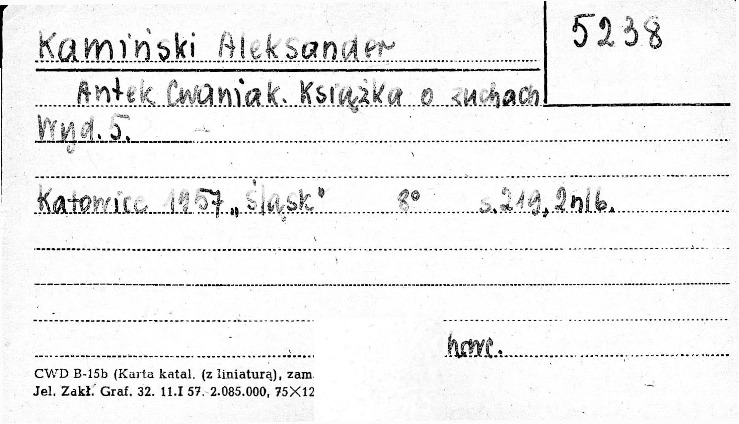 Kamiński Aleksander
5238
Antek Cwaniak. Książka o zuchach
Wyd. 5.
Katowice 1957 „Śląsk" 8° s. 219, 2 nlb.
harc.
CWD B-15b (Karta katal. (z liniaturą), zam.
Jel. Zakł. Graf. 32. 11.I 57. 2.085.000, 75×12